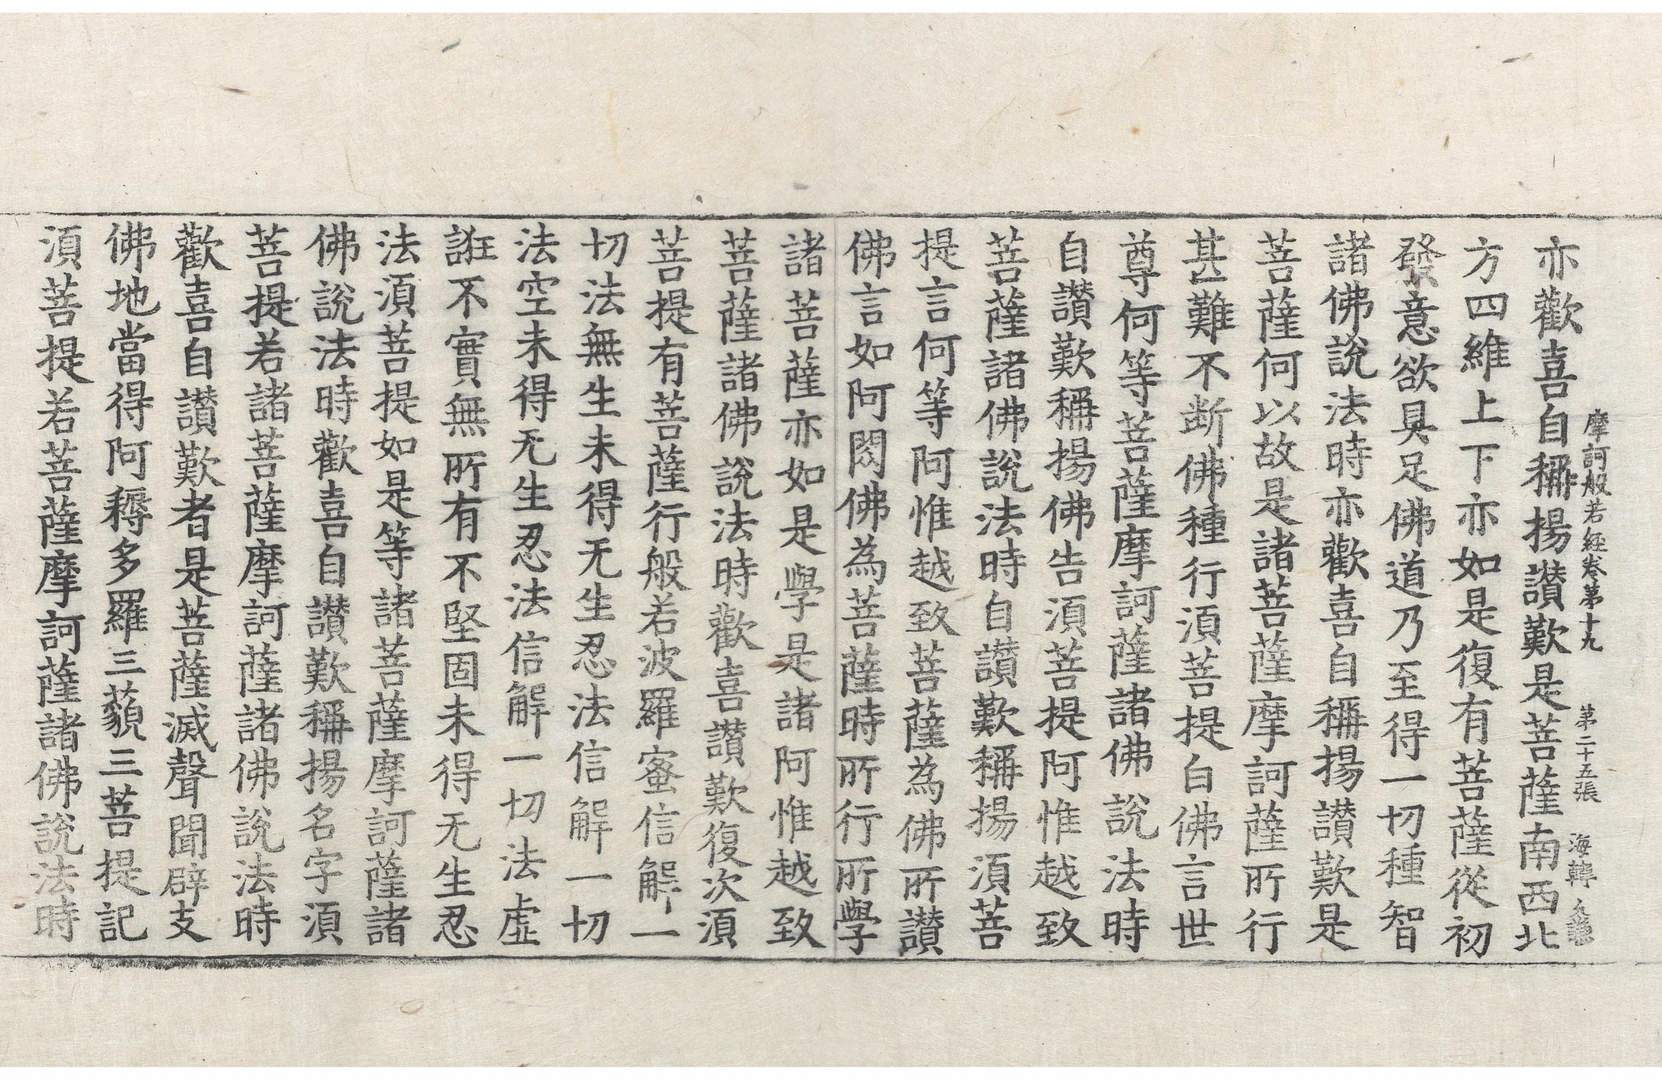 摩訶般若經卷第十九 第二十五張 海
亦歡喜自稱揚讃歎是菩薩南西北
方四維上下亦如是復有菩薩從初
發意欲具足佛道乃至得一切種智
諸佛說法時亦歡喜自稱揚讃歎是
菩薩何以故是諸菩薩摩訶薩所行
甚難不断佛種行須菩提白佛言世
尊何等菩薩摩訶薩諸佛說法時
自讃歎稱揚佛告須菩提阿惟越致
菩薩諸佛說法時自讃歎稱揚須菩
提言何等阿惟越致菩薩為佛所讃
佛言如阿閦佛為菩薩時所行所學
諸菩薩亦如是學是諸阿惟越致
菩薩諸佛說法時歡喜讃歎復次須
菩提有菩薩行般若波羅蜜信解一
切法無生未得无生忍法信解一切
法空未得无生忍法信解一切法虛
誑不實無所有不堅固未得无生忍
法須菩提如是等諸菩薩摩訶薩諸
佛說法時歡喜自讃歎稱揚名字須
菩提若諸菩薩摩訶薩諸佛說法時
歡喜自讃歎者是菩薩滅聲聞辟支
佛地當得阿耨多羅三藐三菩提記
須菩提若菩薩摩訶薩諸佛說法時